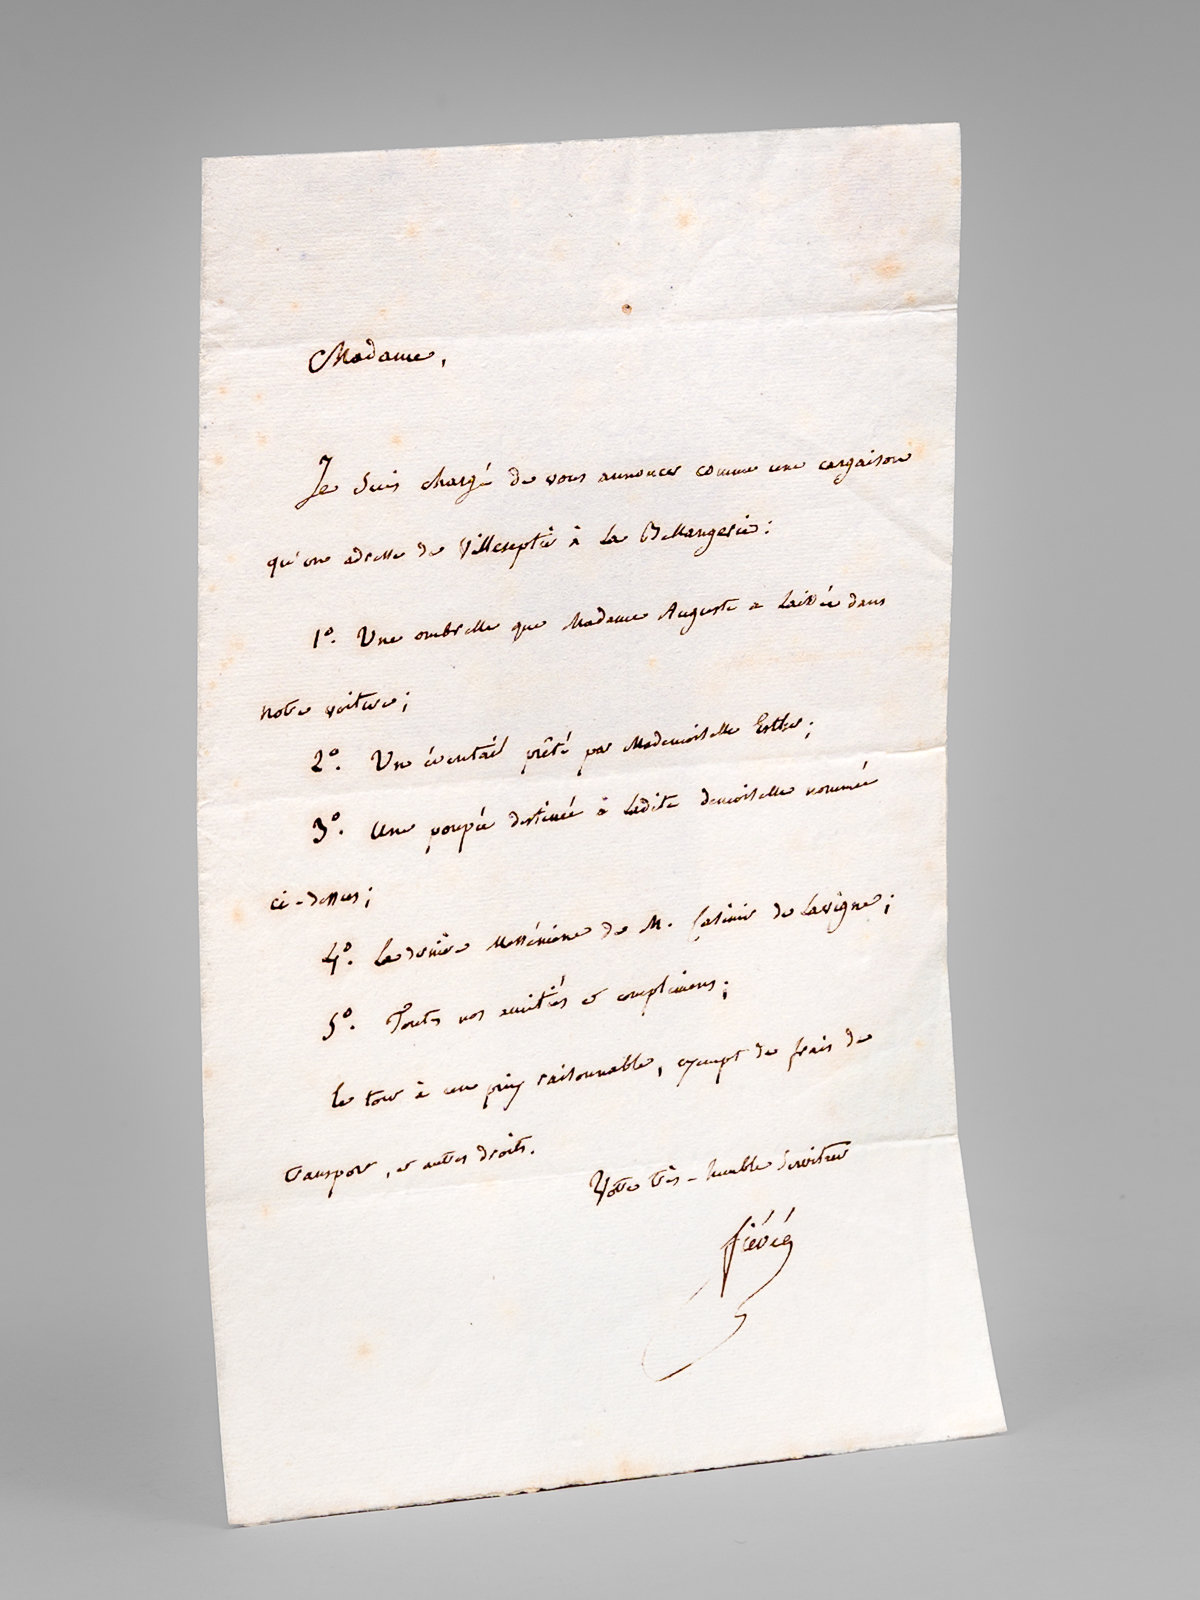 Madame,
Je suis chargé de vous annoncer comme une cargaison
qu'on adresse de Villeseptié à La Bellangerie:
1º. Une ombrelle que Madame Auguste a laissée dans
notre voiture;
2º. Un éventail prêté par Mademoiselle Esther;
3º. Une poupée destinée à ladite demoiselle nommée
ci-dessus;
4º. La dernière Messénienne de M. Casimir de Lavigne;
5º. Toutes nos amitiés et complimens;
Le tout à un prix raisonnable, exempt de frais de
transport, et autres droits.
Votre très-humble Serviteur
fiévée